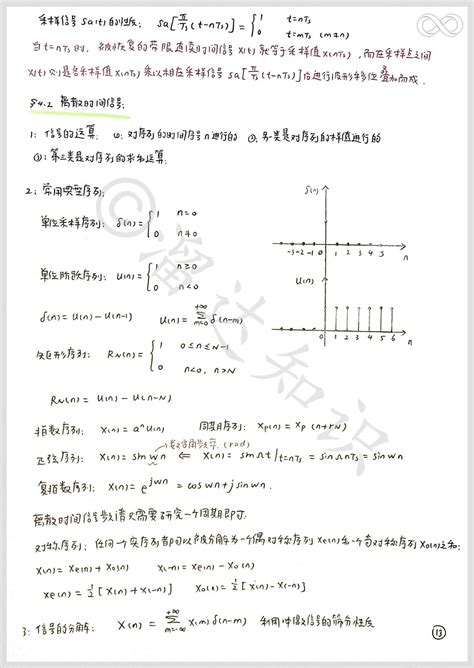 采样信号 Sa(t) 的性质： Sa[π/Ts (t-nTs)] = { 1 t=nTs
0 t=mTs (m≠n)
当 t=nTs 时，被恢复的带限连续时间信号 x(t) 就等于采样值 x(nTs)，而在采样点之间
x(t) 则是各采样值 x(nTs) 乘以相应采样信号 Sa[π/Ts (t-nTs)] 后进行波形移位叠加而成.
§4.2 离散时间信号:
1: 信号的运算. ①: 对序列的时间序号 n 进行的 ②: 另一类是对序列的样值进行的
③: 第三类是对序列的求和运算.
2: 常用典型序列:
单位采样序列: δ(n) = { 1 n=0
0 n≠0
δ(n)
-3 -2 -1 0 1 2 3 4 5 n
单位阶跃序列: u(n) = { 1 n≥0
0 n<0
u(n)
0 1 2 3 4 5 6 n
δ(n) = u(n) - u(n-1) u(n) = Σ_{m=0}^{+∞} δ(n-m)
矩形序列: R_N(n) = { 1 0≤n≤N-1
0 n<0, n>N
R_N(n) = u(n) - u(n-N)
指数序列: x(n) = a^n u(n) 周期序列: x_p(n) = x_p(n+rN)
数字角频率. (rad)
正弦序列: x(n) = sin wn ⇐ x(n) = sin Ωt | t=nTs = sin ΩnTs = sin wn
复指数序列: x(n) = e^{jwn} = cos wn + j sin wn.
离散时间信号频谱只需要研究一个周期即可.
对称序列: 任何一个实序列都可以被分解为一个偶对称序列 Xe(n) 和一个奇对称序列 Xo(n) 之和:
x(n) = Xe(n) + Xo(n) x(-n) = Xe(n) - Xo(n)
Xe(n) = 1/2 [x(n) + x(-n)] Xo(n) = 1/2 [x(n) - x(-n)]
3: 信号的分解: X(n) = Σ_{m=-∞}^{+∞} x(m) δ(n-m) 利用冲激信号的筛分性质
13
©溜达知识